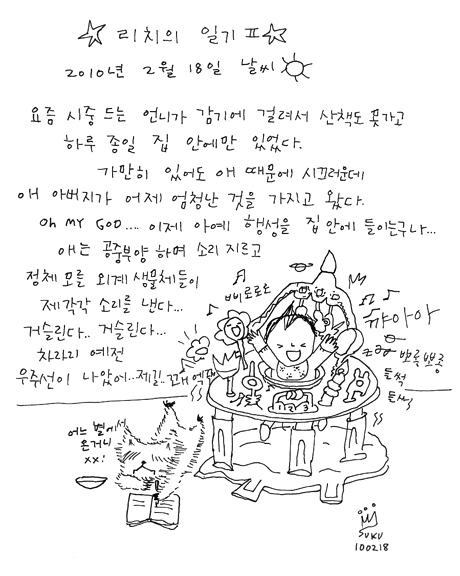 리치의 일기 II
2010년 2월 18일 날씨
요즘 시중 드는 언니가 감기에 걸려서 산책도 못가고
하루 종일 집 안에만 있었다.
가만히 있어도 애 때문에 시끄러운데
애 아버지가 어제 엄청난 것을 가지고 왔다.
Oh MY GOD.... 이제 아예 행성을 집 안에 들이는구나...
애는 공중부양 하며 소리 지르고
정체 모를 외계 생물체들이
제각각 소리를 낸다...
거슬린다.. 거슬린다...
차라리 예전
우주선이 나았어..제길..
삐리로로
꺄아아
뽀롱
들썩
들썩
1 2 3
어느 별에서
온거니
xx!
SUKU
100218